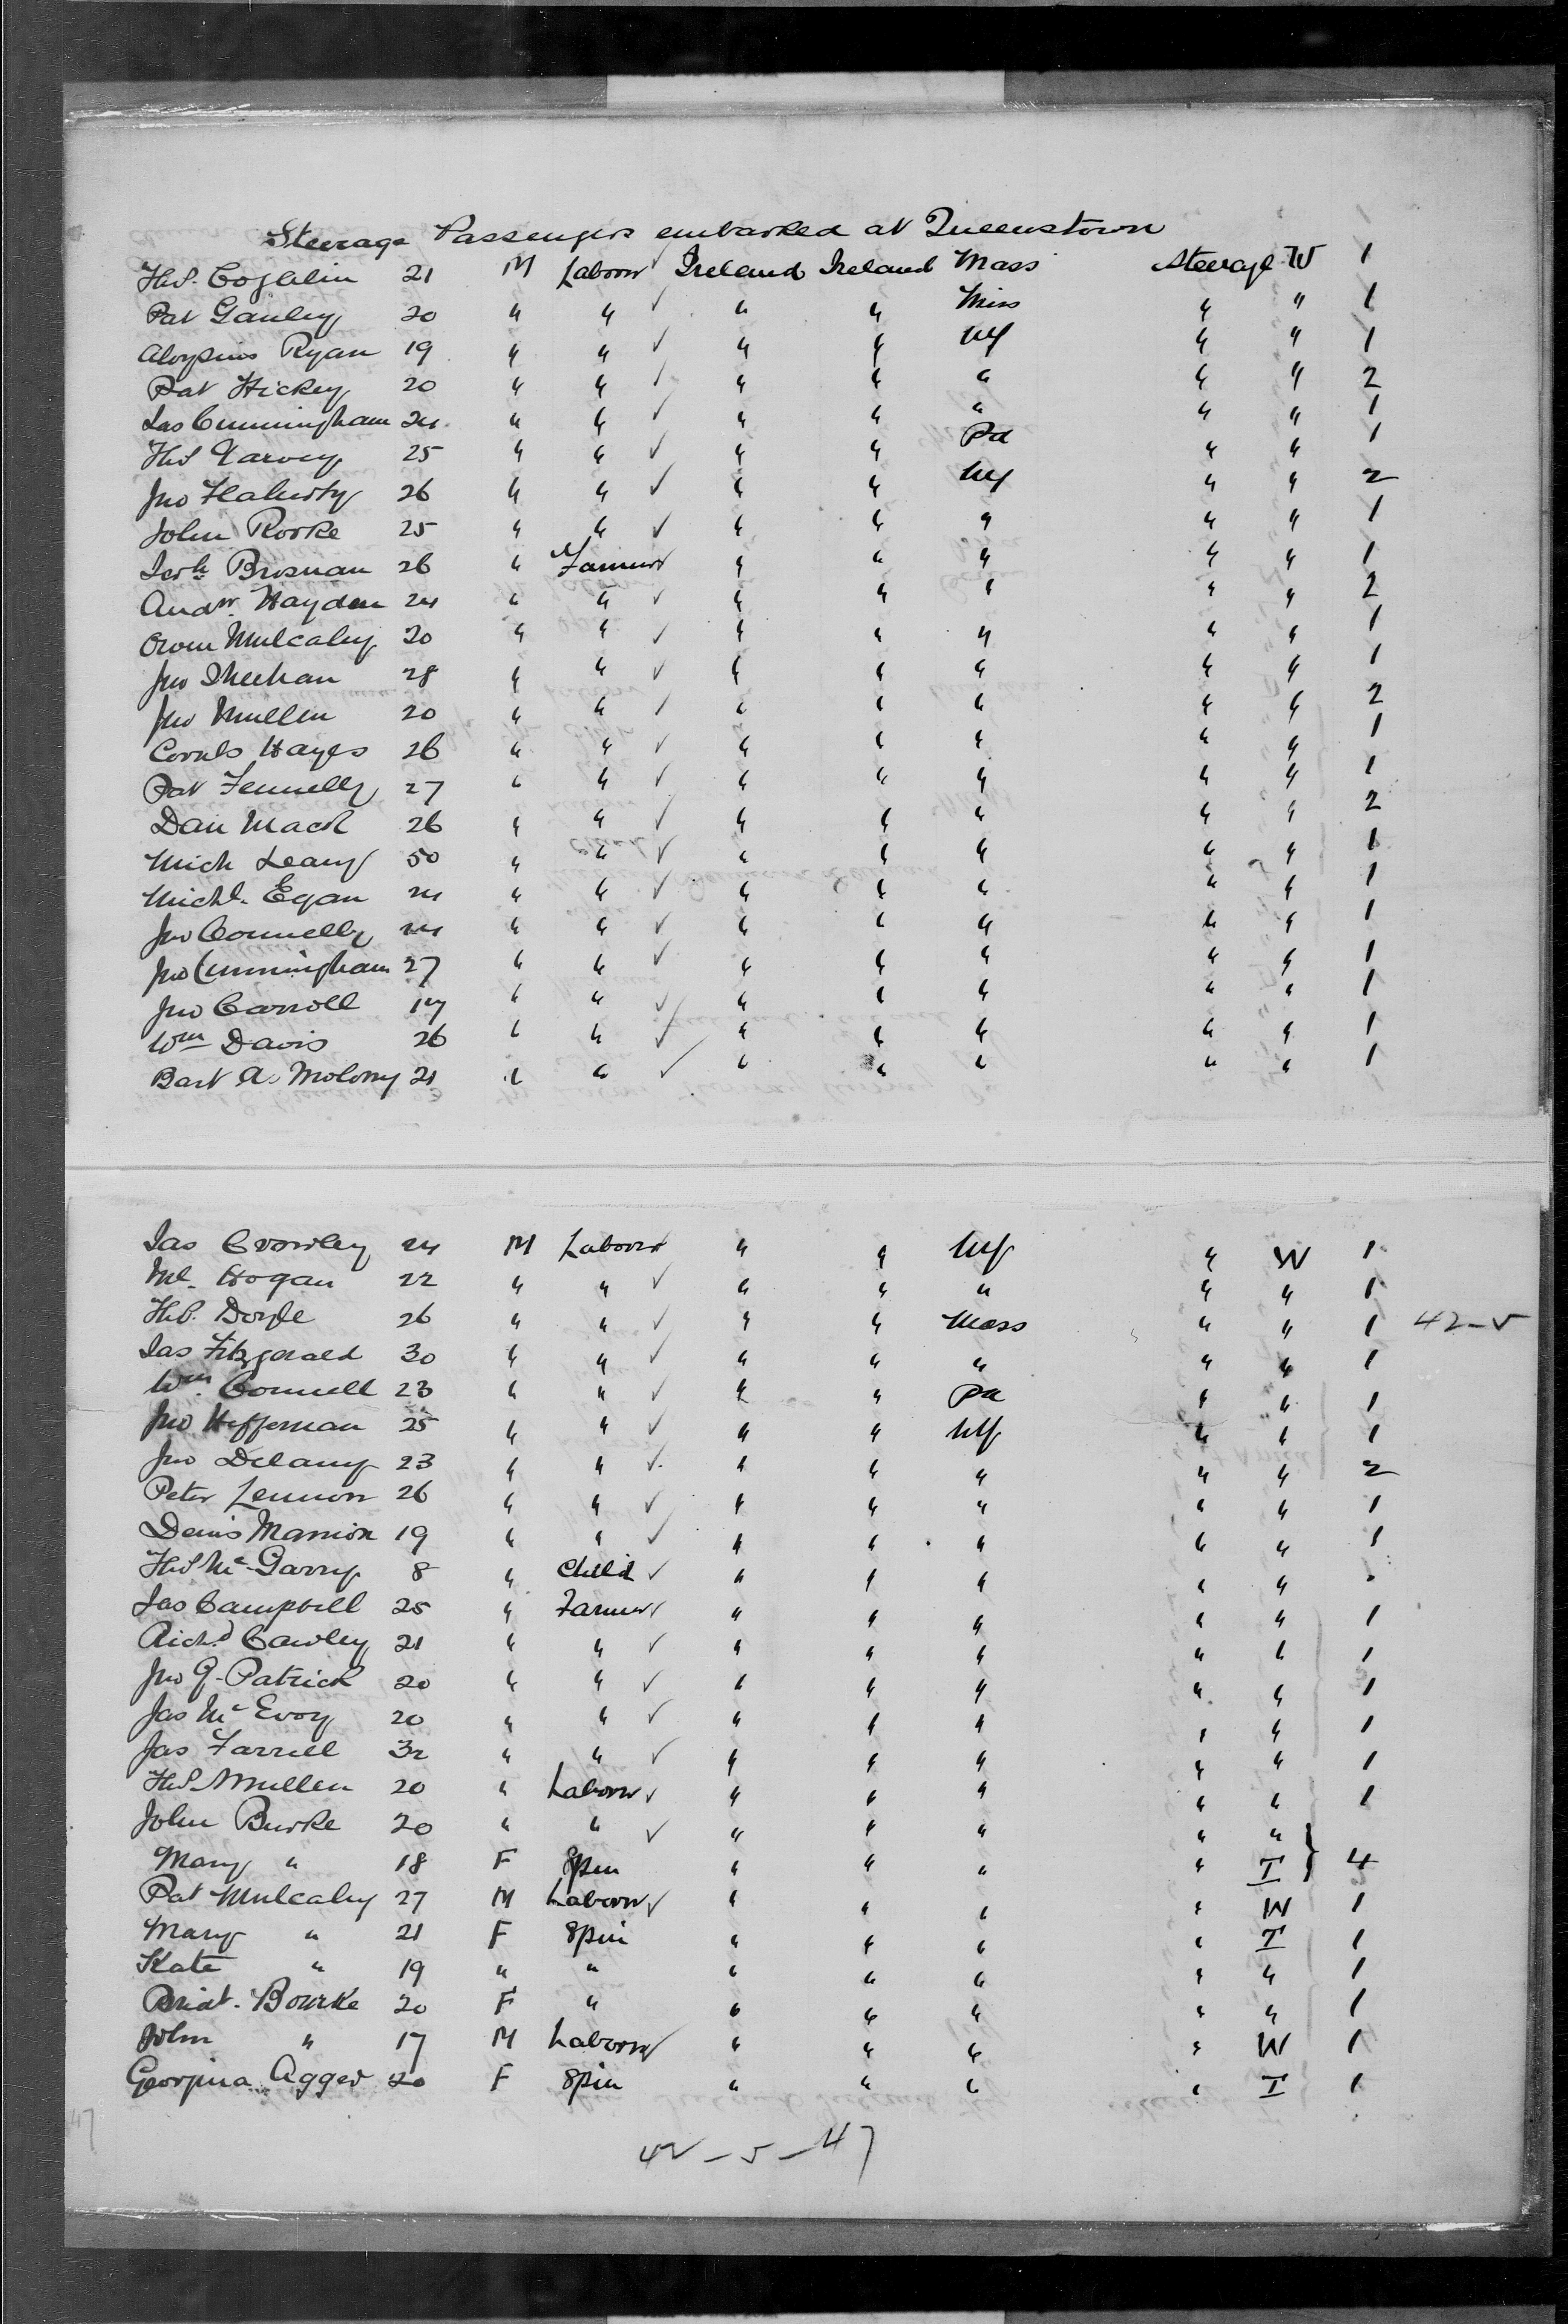 Steerage Passengers embarked at Queenstown
Thos. Coghlin 21 M Laborer ✓ Ireland Ireland Mass Steerage W 1
Pat Ganley 20 " " ✓ " " Miss " " 1
Aloysius Ryan 19 " " ✓ " " NY " " 1
Pat Hickey 20 " " ✓ " " " " " 2
Jas Cunningham 24 " " ✓ " " " " " 1
Thos Garvey 25 " " ✓ " " Pa " " 1
Jno Flaherty 26 " " ✓ " " NY " " 2
John Rorke 25 " " ✓ " " " " " 1
Jerh Brosnan 26 " Farmer ✓ " " " " " 1
Andw. Hayden 24 " " ✓ " " " " " 2
Owen Mulcahy 20 " " ✓ " " " " " 1
Jno Sheehan 28 " " ✓ " " " " " 1
Jno Mullen 20 " " ✓ " " " " " 2
Cornls Hayes 26 " " ✓ " " " " " 1
Pat Fennelly 27 " " ✓ " " " " " 1
Dan Mack 26 " " ✓ " " " " " 2
Mich Leany 50 " " ✓ " " " " " 1
Michl. Egan 24 " " ✓ " " " " " 1
Jno Connelly 24 " " ✓ " " " " " 1
Jno Cunningham 27 " " ✓ " " " " " 1
Jno Carroll 17 " " ✓ " " " " " 1
Wm Davis 26 " " ✓ " " " " " 1
Bart A. Molony 21 " " ✓ " " " " " 1
Jas Crowley 24 M Laborer ✓ " " NY " W 1
Ml. Hogan 22 " " ✓ " " " " " 1
Thos. Doyle 26 " " ✓ " " Mass " " 1 42–5
Jas Fitzgerald 30 " " ✓ " " " " " 1
Wm. Connell 23 " " ✓ " " Pa " " 1
Jno Heffernan 25 " " ✓ " " NY " " 1
Jno Delany 23 " " ✓ " " " " " 2
Peter Lennon 26 " " ✓ " " " " " 1
Denis Mannion 19 " " ✓ " " " " " 1
Thos McGarry 8 " Child ✓ " " " " "
Jas Campbell 25 " Farmer ✓ " " " " " 1
Richd Cawley 21 " " ✓ " " " " " 1
Jno G. Patrick 20 " " ✓ " " " " " 1
Jas McEvoy 20 " " ✓ " " " " " 1
Jas Farrell 32 " " ✓ " " " " " 1
Thos Mullen 20 " Laborer ✓ " " " " " 1
John Burke 20 " " ✓ " " " " "
Mary " 18 F Spin " " " " I } 4
Pat Mulcahy 27 M Laborer ✓ " " " " W 1
Mary " 21 F Spin " " " " I 1
Kate " 19 " " " " " " " 1
Bridt. Bourke 20 F " " " " " " 1
John " 17 M Laborer ✓ " " " " W 1
Georgina Agger 20 F Spin " " " " I 1
42–5–47